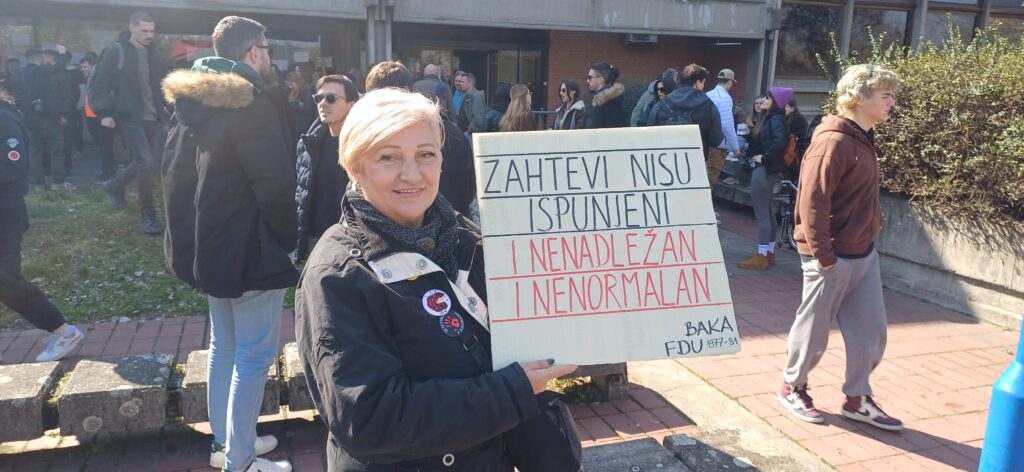 ZAHTEVI NISU
ISPUNJENI
I NENADLEŽAN
I NENORMALAN
BAKA
FDU 1977-81